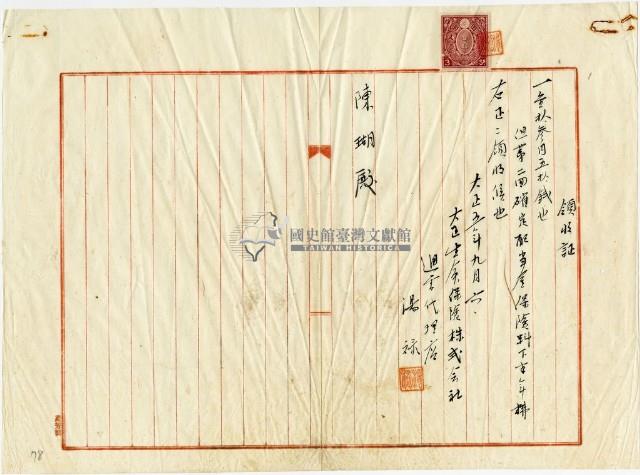 領收証
一金拾參円五拾錢也
但第二回確定配当金保險料下半年拂
右正ニ領收候也
大正五年九月六日
大正生命保險株式会社
代理店
湯 祿
陳 瑚 殿
國史館臺灣文獻館
TAIWAN HISTORICA
78